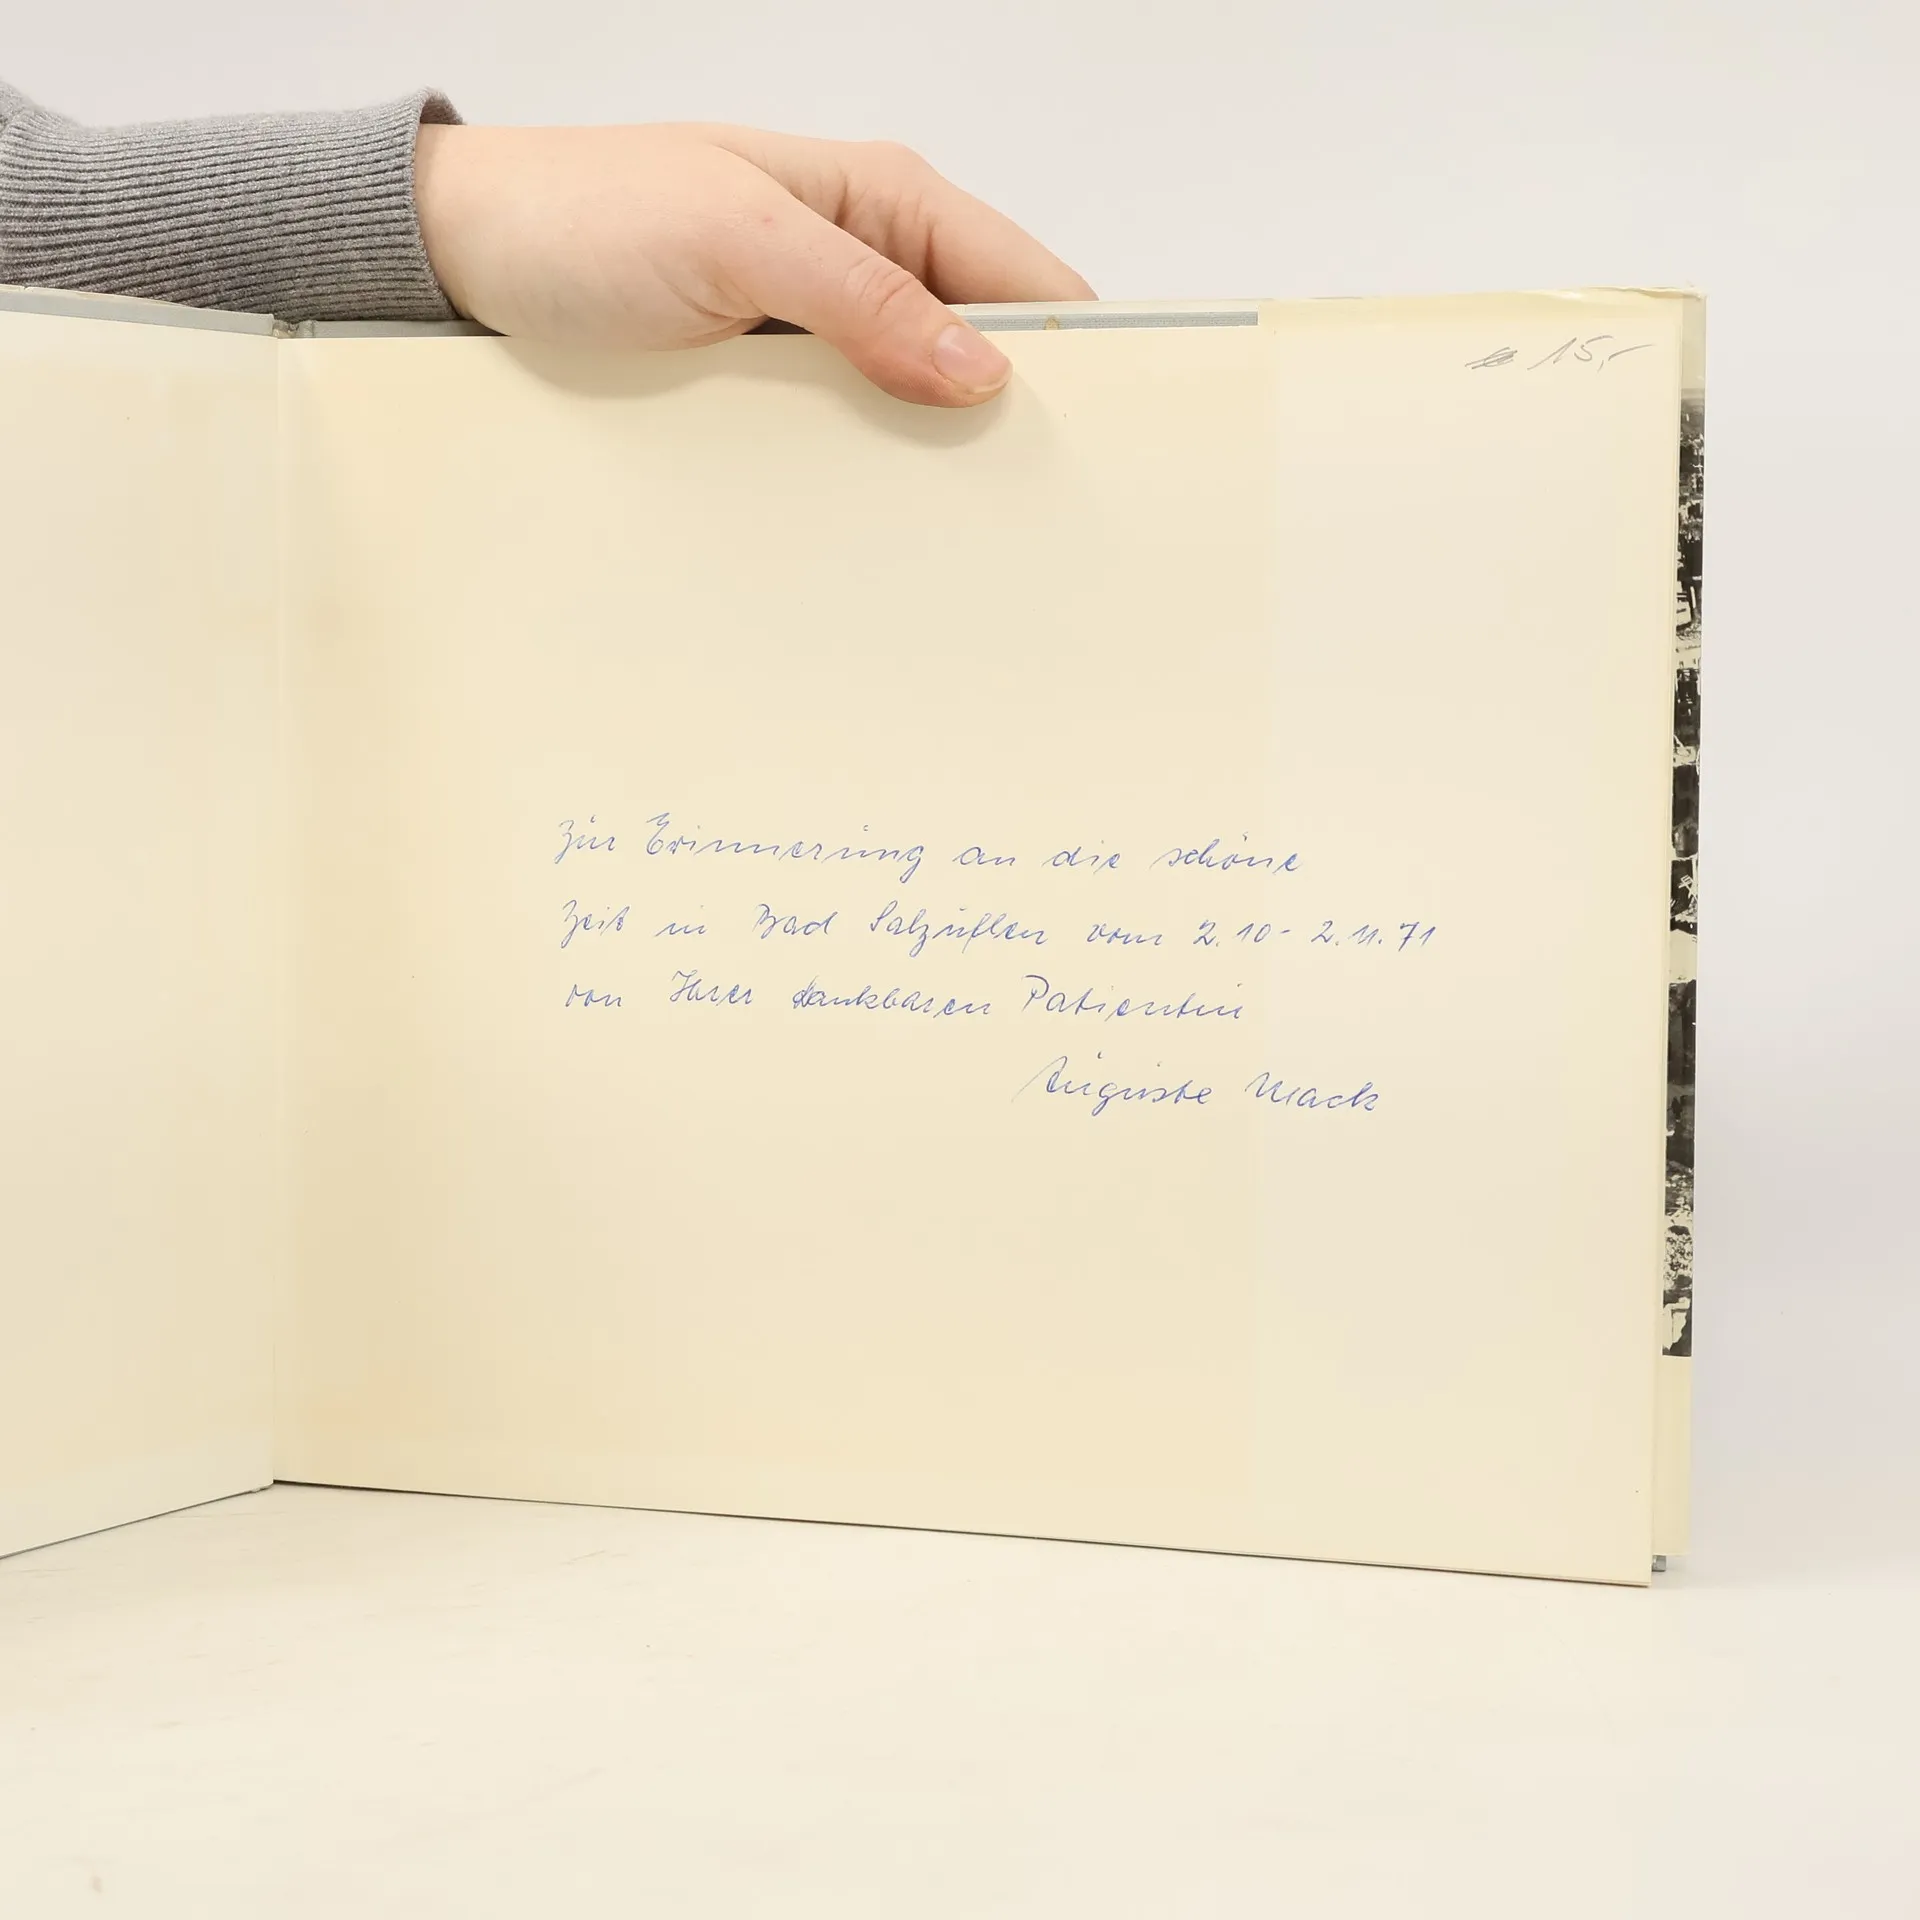 15,-
Zur Erinnerung an die schöne
Zeit in Bad Salzuflen vom 2.10 - 2.11.71
von Ihrer dankbaren Patientin
Auguste Mack